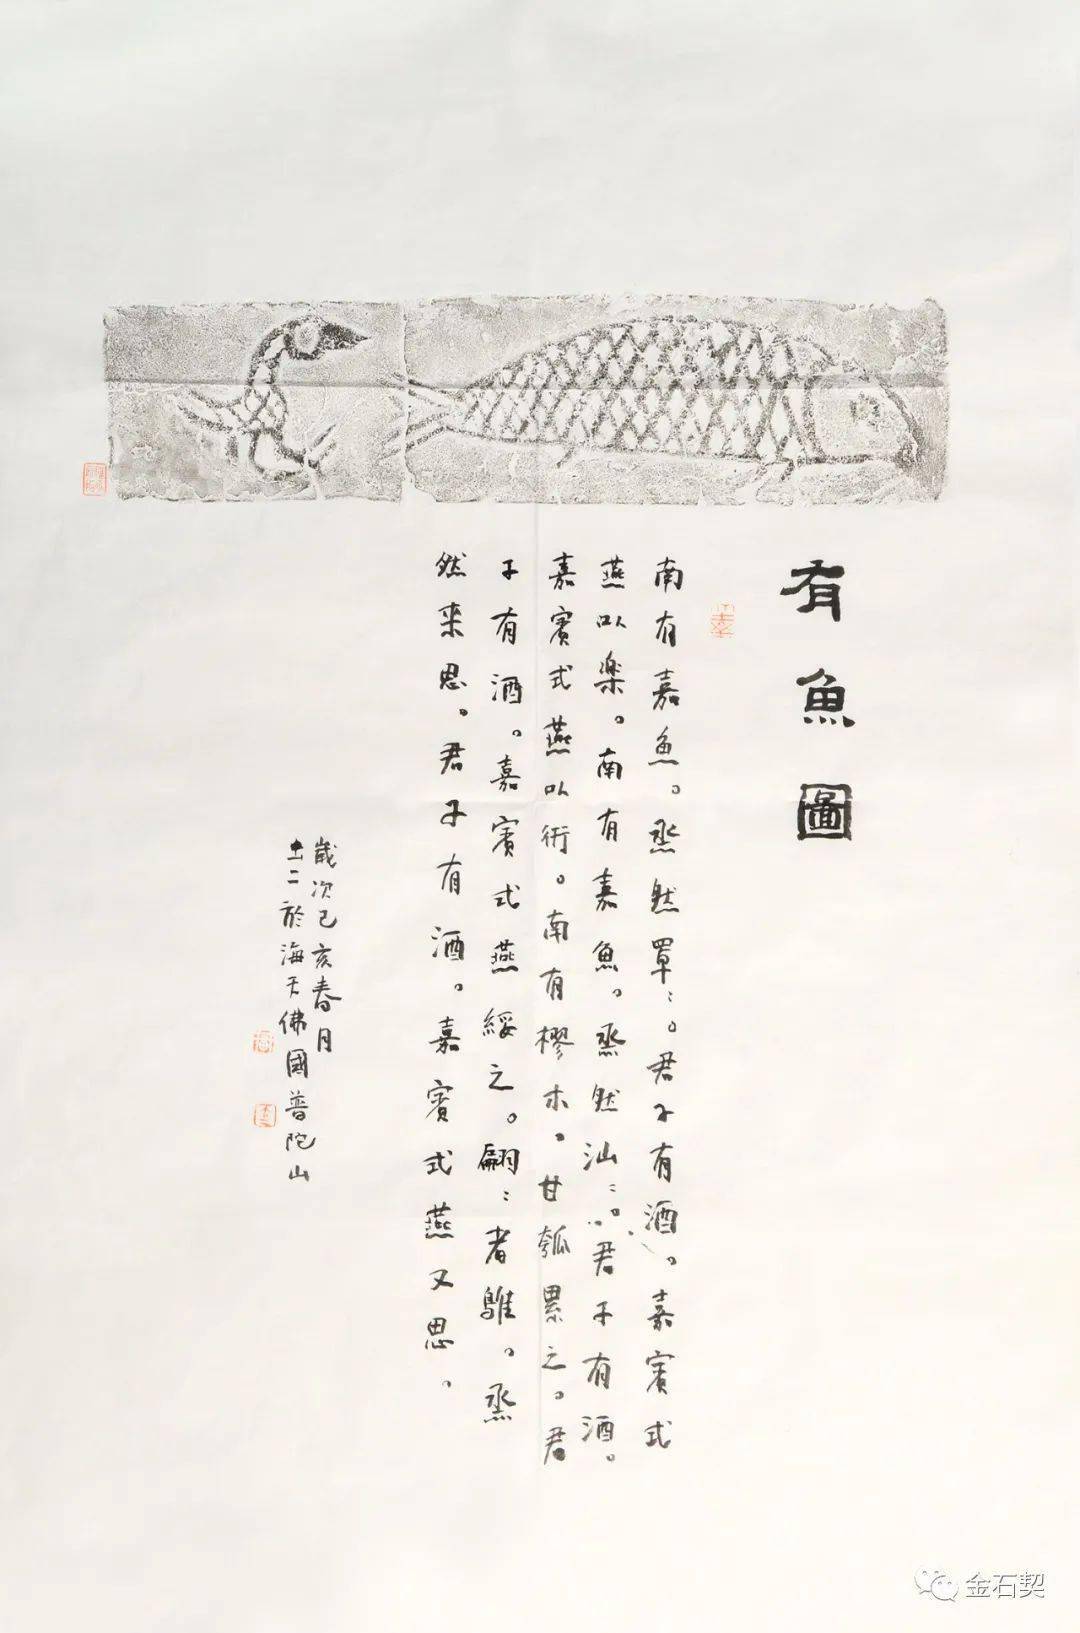 有魚圖
南有嘉魚。烝然罩:。君子有酒。嘉賓式
燕以樂。南有嘉魚。烝然汕:。君子有酒。
嘉賓式燕以衎。南有樛木。甘瓠累之。君
子有酒。嘉賓式燕綏之。翩:者鵻。烝
然來思。君子有酒。嘉賓式燕又思。
歲次己亥春月
士二於海天佛國普陀山
金石契